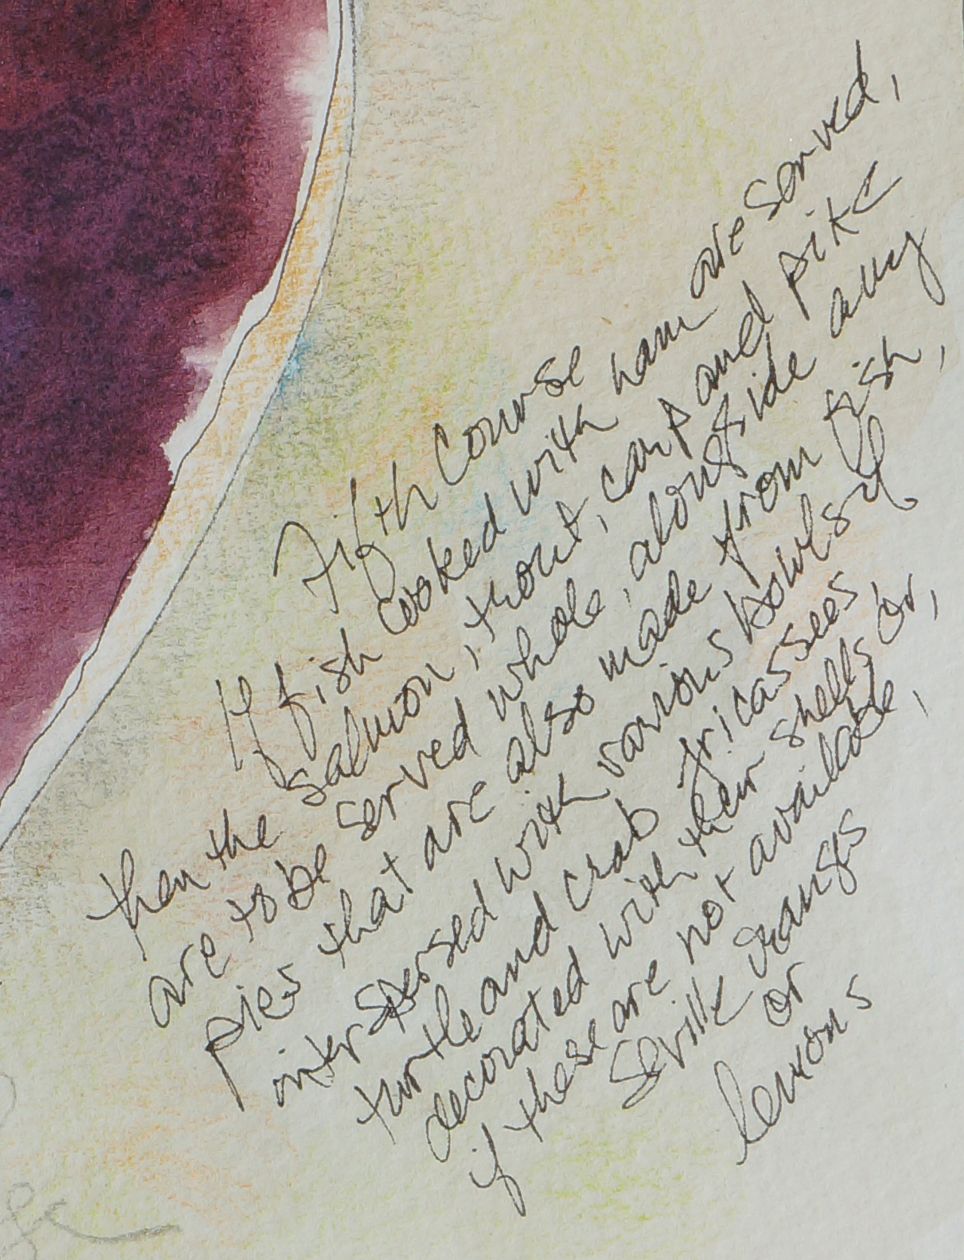 Fifth Course
If fish cooked with ham are served,
then the salmon, trout, carp and pike
are to be served whole, alongside any
pies that are also made from fish,
interspersed with various bowls of
turtle and crab fricassees
decorated with their shells or,
if these are not available,
Seville oranges
or
lemons